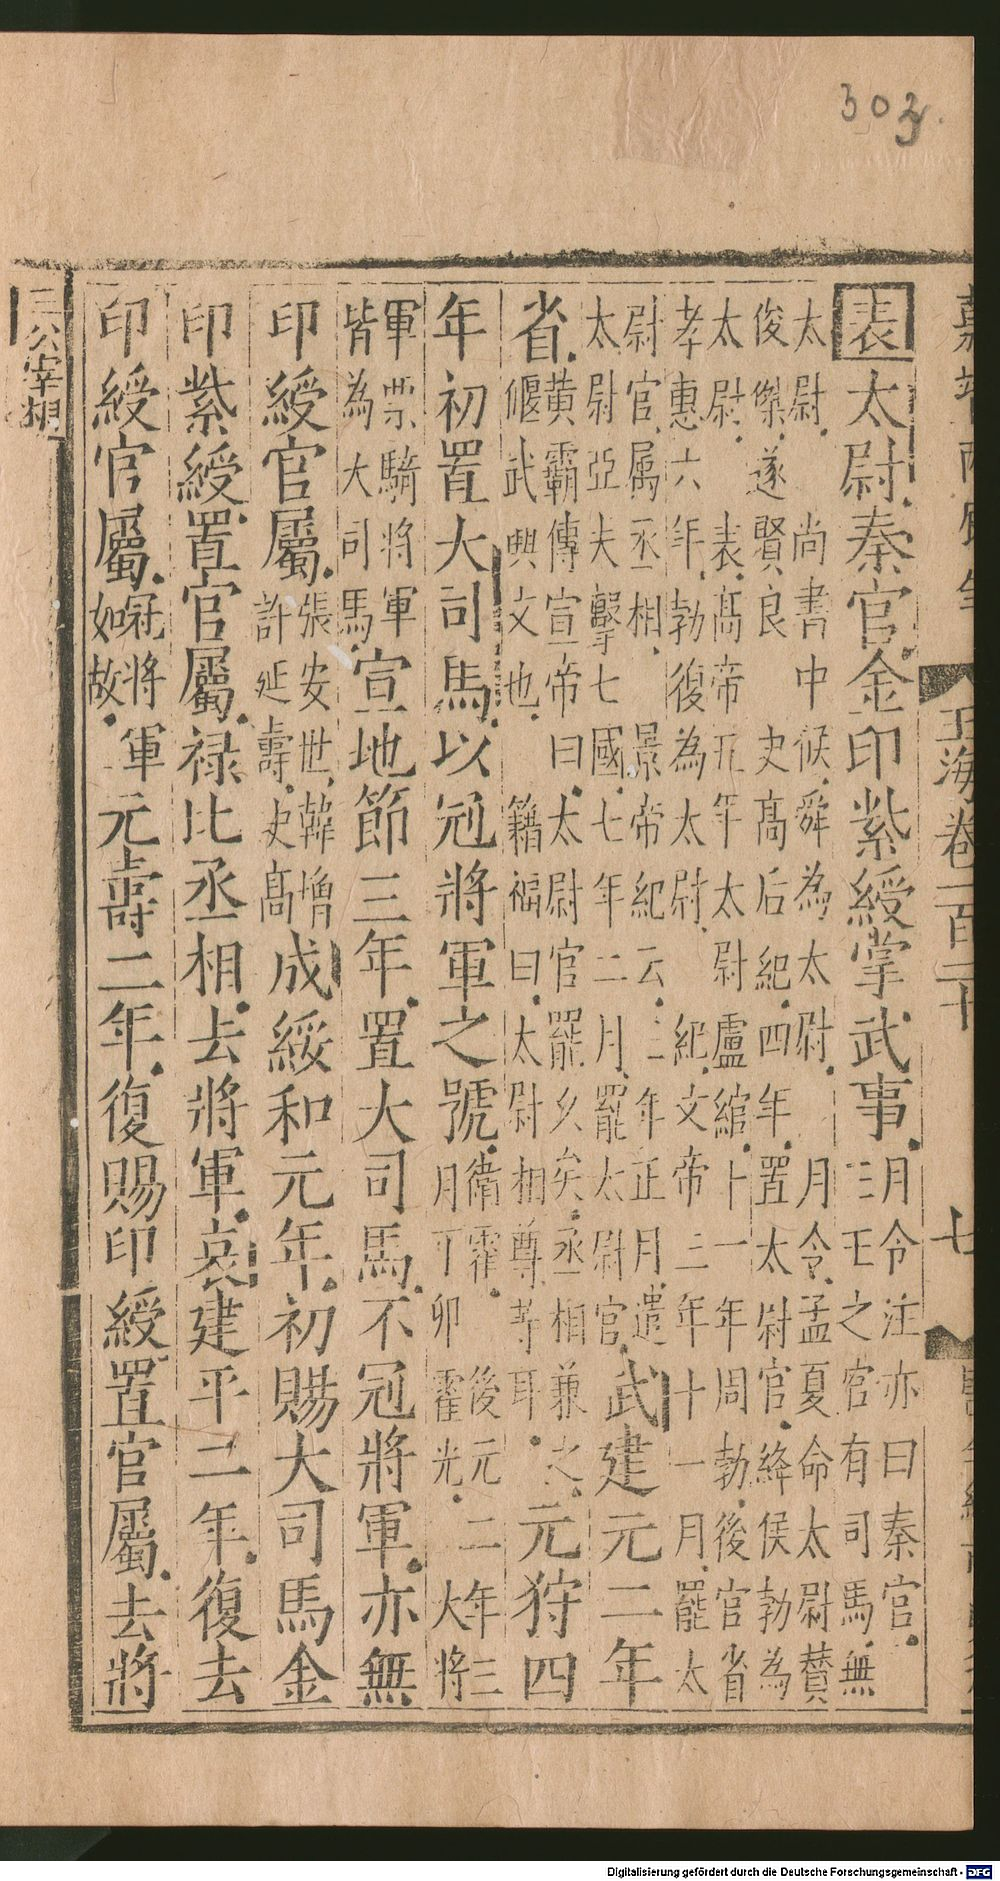 303
玉海卷一百二十
七
表太尉秦官金印紫綬掌武事月令注亦曰秦官三王之官有司馬無
太尉尚書中候舜為太尉月令孟夏命太尉贊俊傑遂賢良史高后紀四年置太尉官絳侯勃為
太尉表高帝元年太尉盧綰十一年周勃後官省孝惠六年勃復為太尉紀文帝三年十一月罷太
尉官属丞相景帝紀云三年正月遣太尉亞夫擊七國七年二月罷太尉官武建元二年
省黃霸傳宣帝曰太尉官罷久矣丞相兼之偃武興文也籍福曰太尉相尊等耳元狩四
年初置大司馬以冠將軍之號衛霍後元二年三月丁卯霍光大將
軍票騎將軍皆為大司馬宣地節三年置大司馬不冠將軍亦無
印綬官屬張安世韓增許延壽史高成綏和元年初賜大司馬金
印紫綬置官屬祿比丞相去將軍哀建平二年復去
印綬官屬冠將軍如故元壽二年復賜印綬置官屬去將
三公宰相
Digitalisierung gefördert durch die Deutsche Forschungsgemeinschaft - DFG